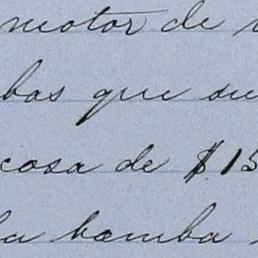 motor de
bas que su
cosa de $15
la bomba